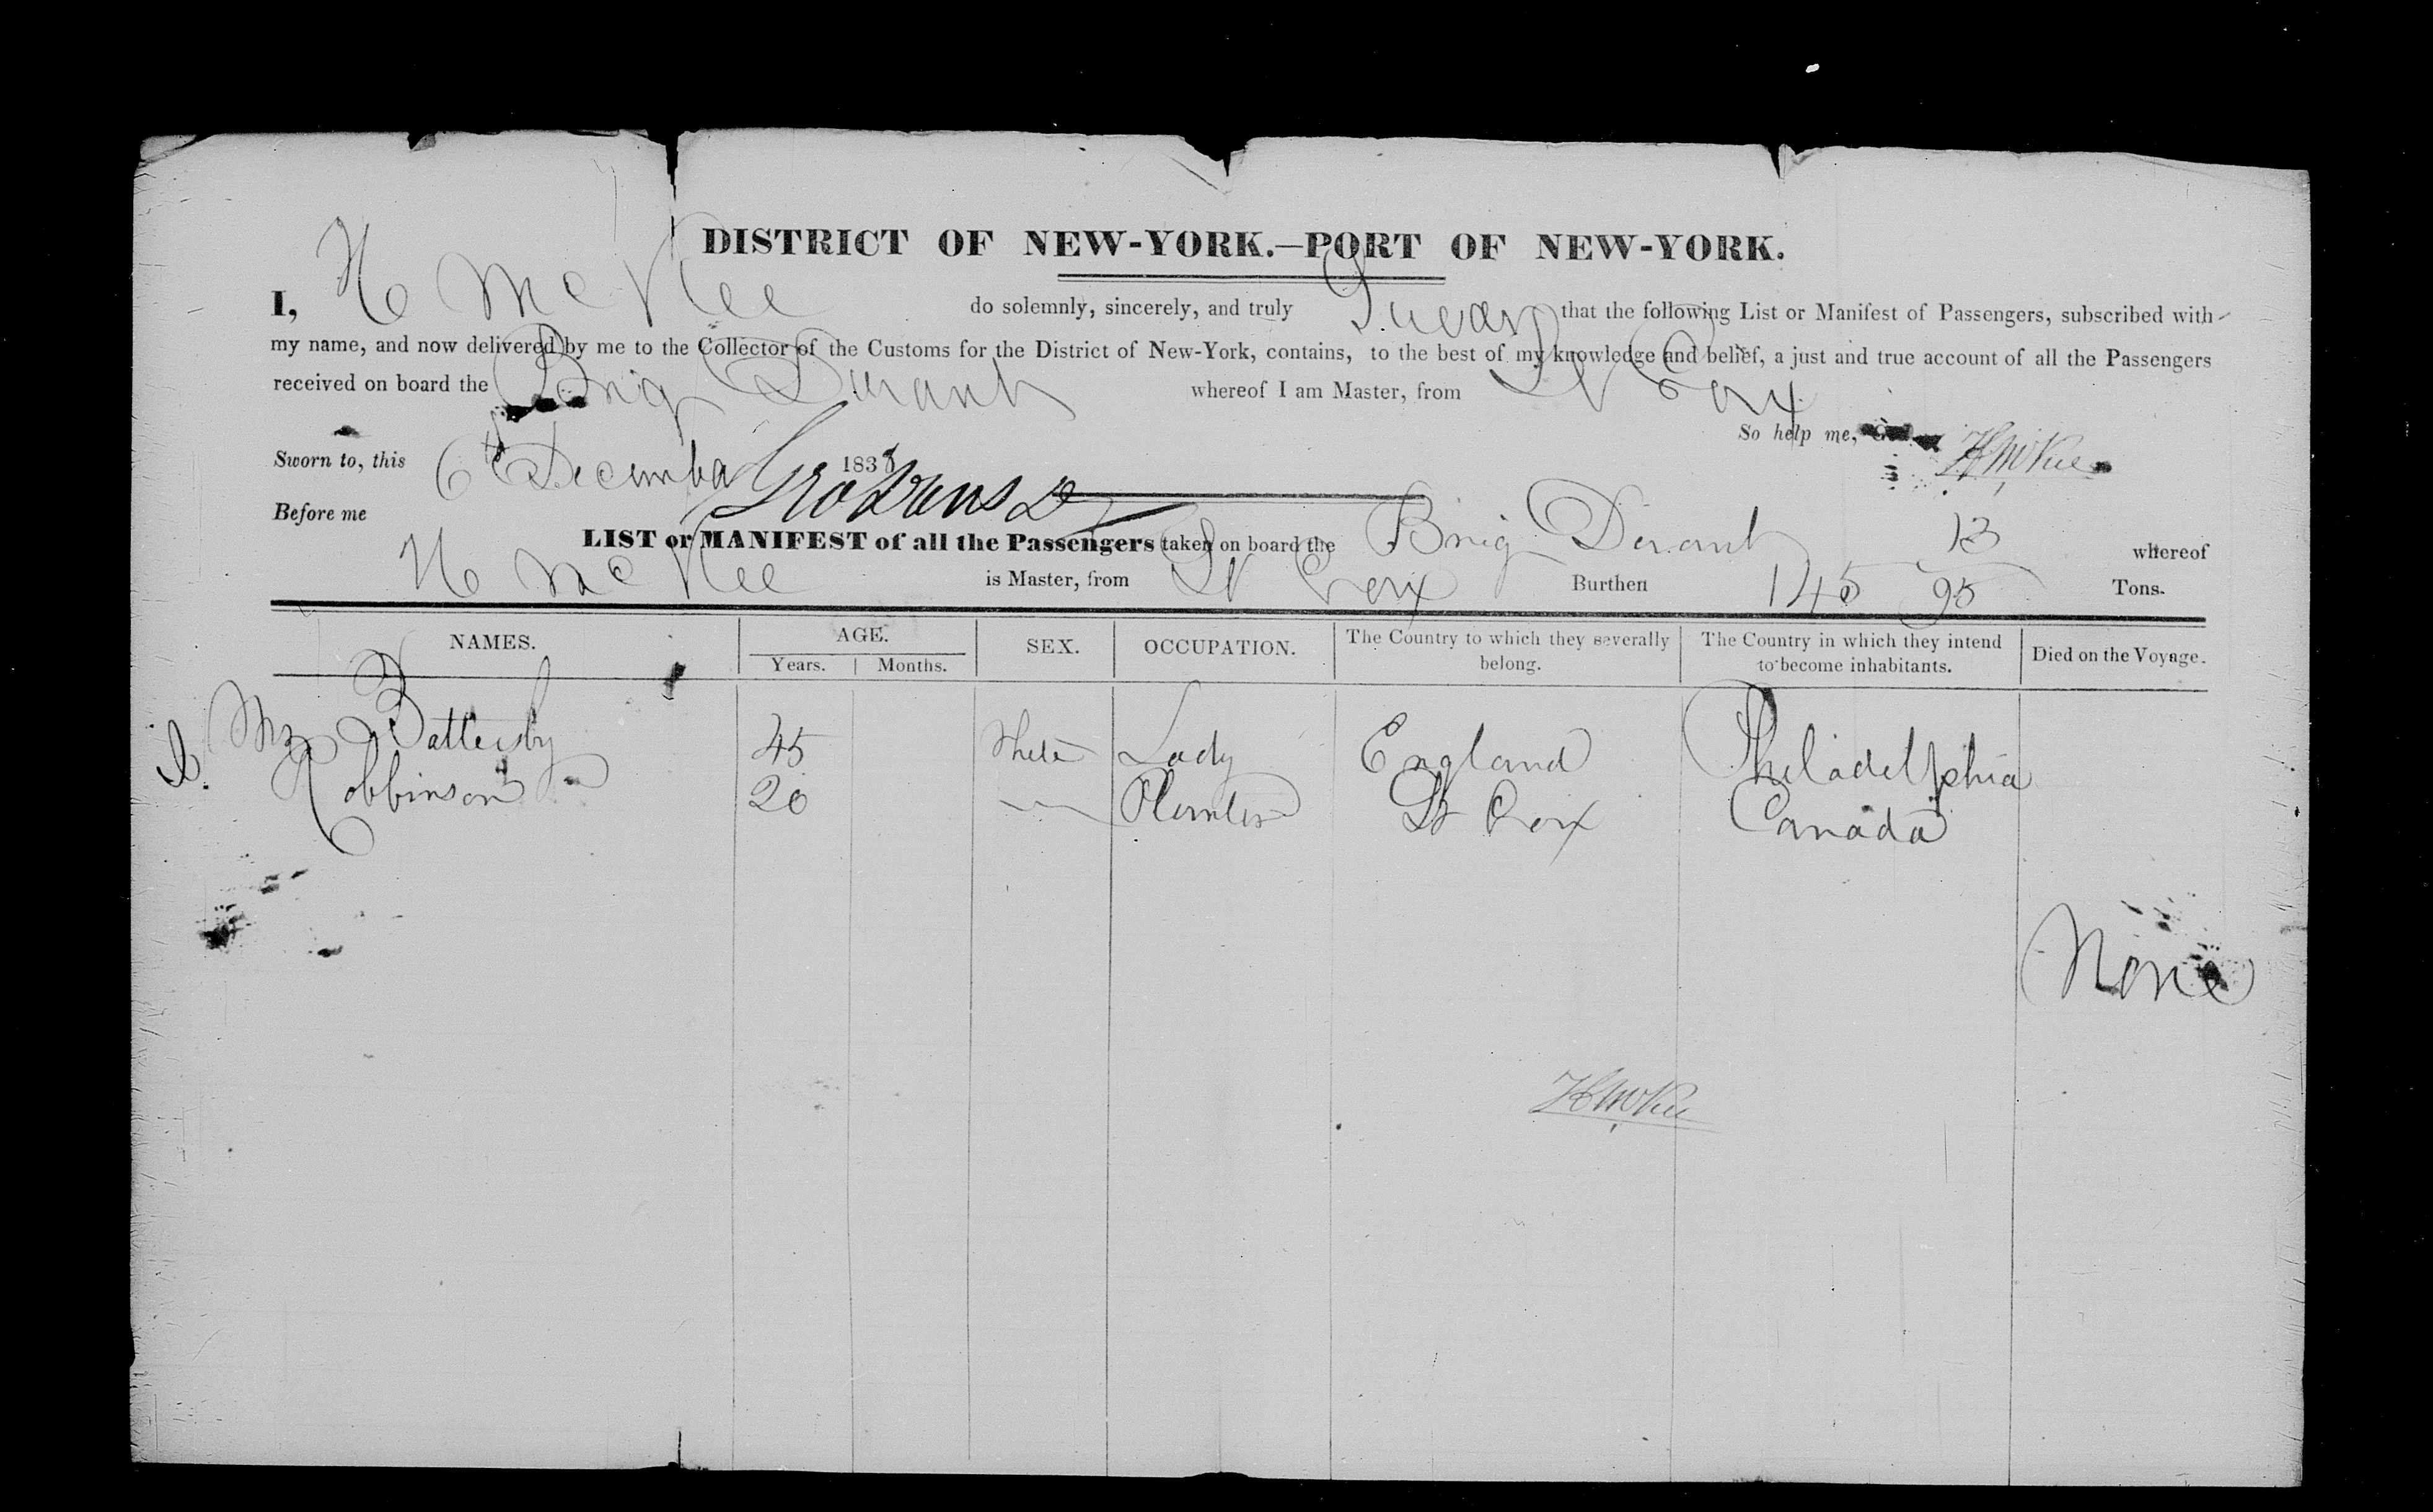 DISTRICT OF NEW-YORK.—PORT OF NEW-YORK.
I, H McKee do solemnly, sincerely, and truly Swear that the following List or Manifest of Passengers, subscribed with
my name, and now delivered by me to the Collector of the Customs for the District of New-York, contains, to the best of my knowledge and belief, a just and true account of all the Passengers
received on board the Brig Durant whereof I am Master, from St Croix
So help me, God. H McKee
Sworn to, this 6th December 1838
Before me
LIST or MANIFEST of all the Passengers taken on board the Brig Durant whereof
H McKee is Master, from St Croix Burthen 145 13/95 Tons.
NAMES. AGE. SEX. OCCUPATION. The Country to which they severally belong. The Country in which they intend to become inhabitants. Died on the Voyage.
Years. Months.
Battersby 45 Lady England Philadelphia
Robbinson 20 Planter St Croix Canada
None
H McKee